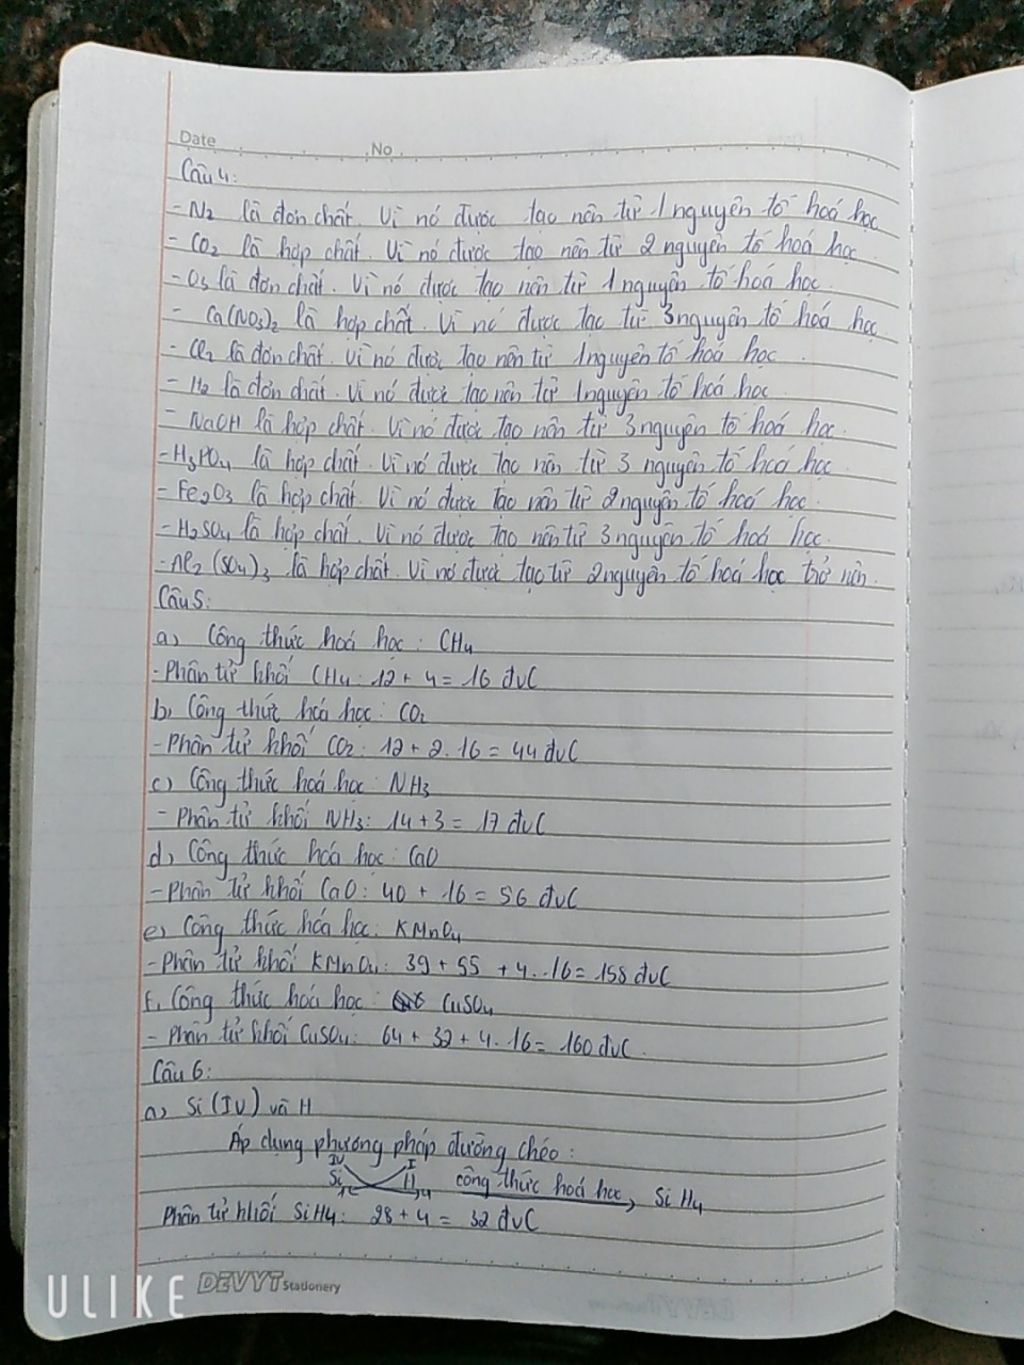 Date No
Câu 4:
- N2 là đơn chất. Vì nó được tạo nên từ 1 nguyên tố hoá học
- CO2 là hợp chất. Vì nó được tạo nên từ 2 nguyên tố hoá học
- O3 là đơn chất. Vì nó được tạo nên từ 1 nguyên tố hoá học.
- Ca(NO3)2 là hợp chất. Vì nó được tạo từ 3 nguyên tố hoá học
- Cl2 là đơn chất. Vì nó được tạo nên từ 1 nguyên tố hoá học.
- H2 là đơn chất. Vì nó được tạo nên từ 1 nguyên tố hoá học.
- NaOH là hợp chất. Vì nó được tạo nên từ 3 nguyên tố hoá học.
- H3PO4 là hợp chất. Vì nó được tạo nên từ 3 nguyên tố hoá học
- Fe2O3 là hợp chất. Vì nó được tạo nên từ 2 nguyên tố hoá học.
- H2SO4 là hợp chất. Vì nó được tạo nên từ 3 nguyên tố hoá học.
- Al2(SO4)3 là hợp chất. Vì nó được tạo từ 2 nguyên tố hoá học trở nên.
Câu 5:
a) Công thức hoá học: CH4
- Phân tử khối CH4: 12 + 4 = 16 đvC
b) Công thức hoá học: CO2
- Phân tử khối CO2: 12 + 2.16 = 44 đvC
c) Công thức hoá học: NH3
- Phân tử khối NH3: 14 + 3 = 17 đvC
d) Công thức hoá học: CaO
- Phân tử khối CaO: 40 + 16 = 56 đvC
e) Công thức hoá học: KMnO4
- Phân tử khối KMnO4: 39 + 55 + 4.16 = 158 đvC
f, Công thức hoá học: CuSO4
- Phân tử khối CuSO4: 64 + 32 + 4.16 = 160 đvC.
Câu 6:
a) Si (IV) và H
Áp dụng phương pháp đường chéo:
IV I
Si H công thức hoá học, SiH4
Phân tử khối SiH4: 28 + 4 = 32 đvC
DEVYT Stationery
ULIKE